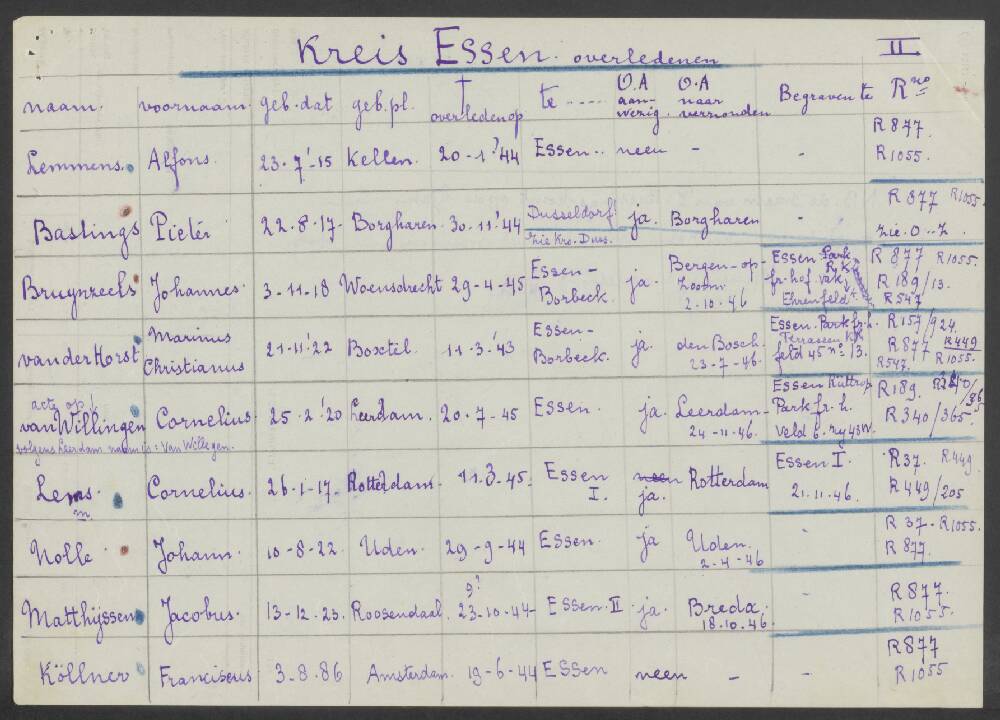 Kreis Essen. overledenen II
naam. voornaam. geb. dat geb. pl. † overleden op te ..... O.A aanwezig. O.A naar verzonden Begraven te Rno
Lemmens. Alfons. 23-7-'15 Kellen. 20-1?'44 Essen.. neen - - R877. R1055.
Bastings Pieter 22-8-17- Borgharen 30-11-'44 Dusseldorf! zie Krs. Duss. ja. Borgharen - R877 R1055. zie.O..Z.
Bruynzeels Johannes. 3-11-18 Woensdrecht 29-4-45 Essen-Borbeck. ja. Bergen-op-Zoom 2-10-46 Essen Park fr. hof. vak Ehrenfeld R877 R1055. R189/13. R547
van der Horst Marinus Christianus 21-11-'22 Boxtel. 11-3-'43 Essen-Borbeck. ja. den Bosch. 23-7-46. Essen. Park fr. h. Terrassen K.K feld 45 no 13. R157/924. R877 R449 R547. R1055.
acte op!
van Willingen Cornelius. 25-2-'20 Leerdam. 20-7-45 Essen. ja. Leerdam- 24-11-46. Essen Park fr. h. veld 6. ry 43 R189. R340/365
volgens Leerdam naam is: Van Willegen.
Lems. m. Cornelius. 26-1-17. Rotterdam. 11-3-45. Essen I. neen ja. Rotterdam Essen I. 21.11.46. R37. R449. R449/205
Nolle Johann. 10-8-22. Uden. 29-9-44 Essen. ja Uden. 2-4-46 - R37-R1055. R877.
Matthijssen Jacobus. 13-12-23. Roosendaal. 9? 23-10-44- Essen-II ja. Breda. 18.10.46. - R877. R1055.
Köllner Franciscus 3-8-86 Amsterdam. 19-6-44 Essen neen - - R877 R1055